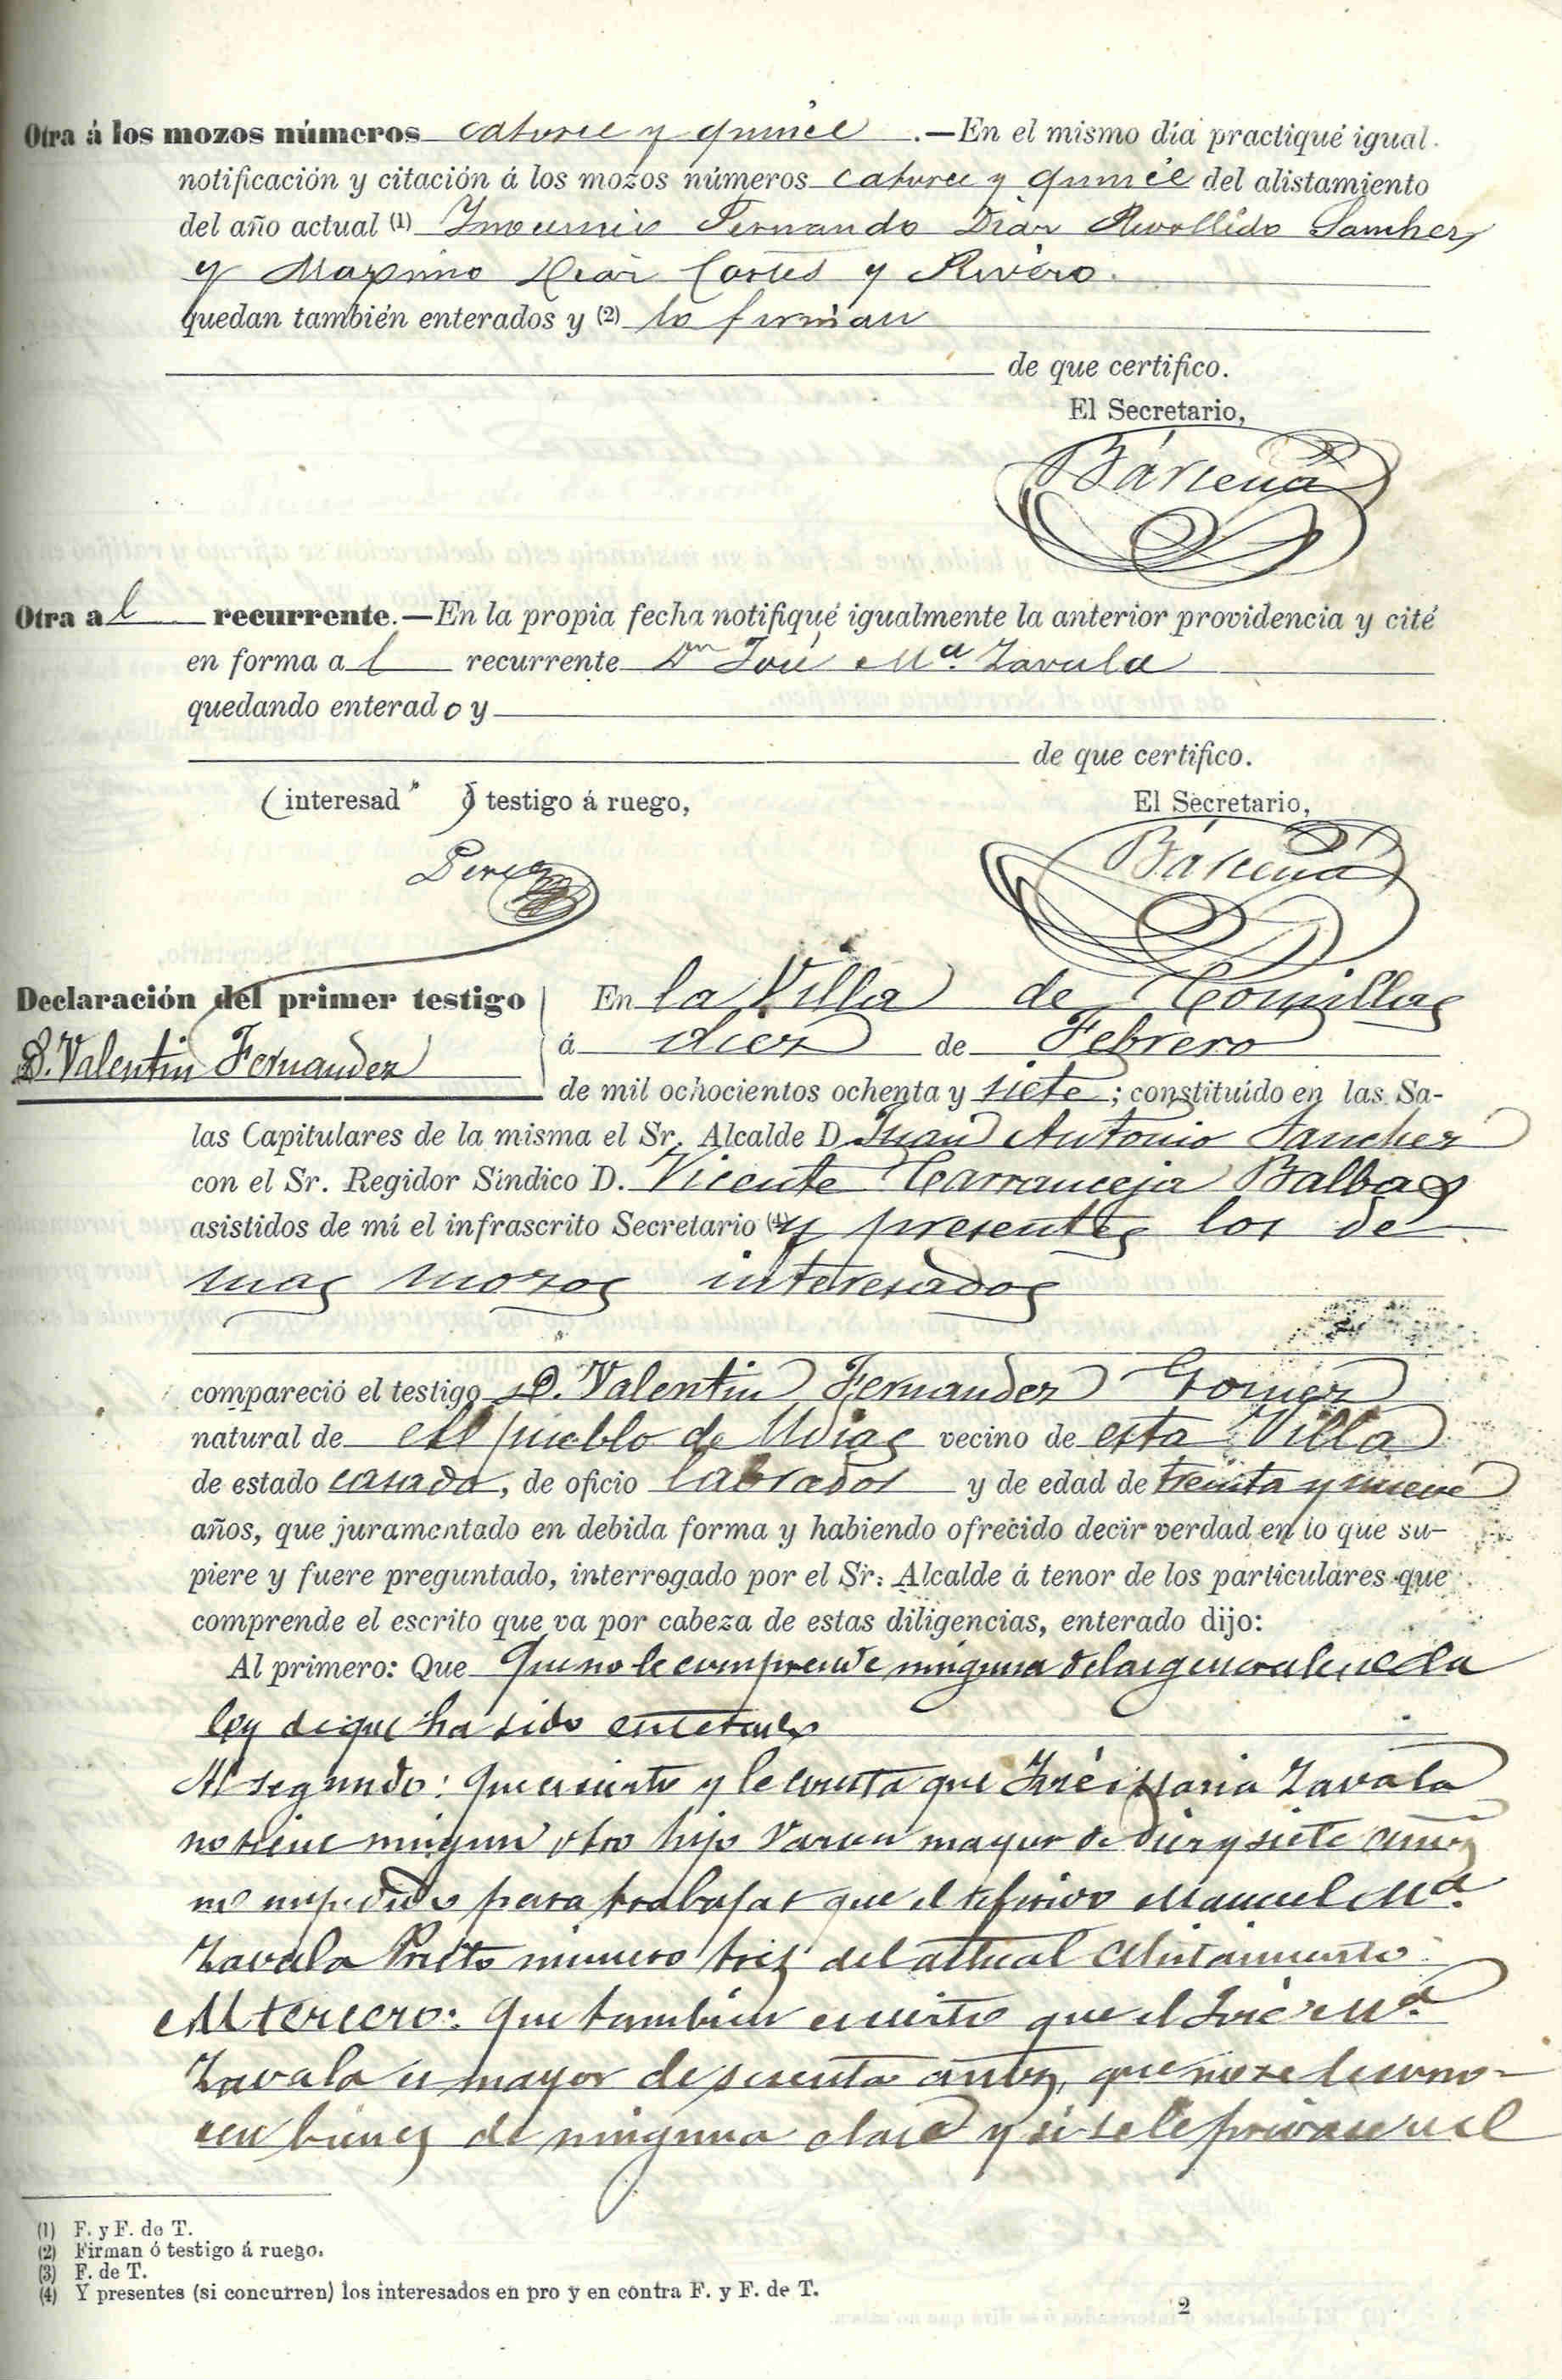 Otra á los mozos números catorce y quince .—En el mismo día practiqué igual
notificación y citación á los mozos números catorce y quince del alistamiento
del año actual (1) Fernando Diaz Sanchez
y Maximo Diaz Cortés y Rivero.
quedan también enterados y (2) lo firman
de que certifico.
El Secretario,
Bárcena
Otra al recurrente.—En la propia fecha notifiqué igualmente la anterior providencia y cité
en forma al recurrente Dn José Ma. Zavala
quedando enterado y
de que certifico.
(interesado) testigo á ruego,
El Secretario,
Perez
Bárcena
Declaración del primer testigo
D. Valentin Fernandez
En la Villa de Comillas
á diez de Febrero
de mil ochocientos ochenta y siete; constituído en las Sa-
las Capitulares de la misma el Sr. Alcalde D. Juan Antonio Sanchez
con el Sr. Regidor Síndico D. Vicente Carranceja Balbas
asistidos de mí el infrascrito Secretario (4) y presentes los de
mas mozos interesados
compareció el testigo D. Valentin Fernandez Gomez
natural de el pueblo de Udias vecino de esta Villa
de estado casado, de oficio labrador y de edad de treinta y nueve
años, que juramentado en debida forma y habiendo ofrecido decir verdad en lo que su-
piere y fuere preguntado, interrogado por el Sr. Alcalde á tenor de los particulares que
comprende el escrito que va por cabeza de estas diligencias, enterado dijo:
Al primero: Que Que no le comprende ninguna de las generales de la
ley de que ha sido enterado
Al segundo: Que es cierto y le consta que José Maria Zavala
no tiene ningun otro hijo varon mayor de diez y siete años
no impedido para trabajar que el referido Manuel Ma.
Zavala Prieto numero tres del actual alistamiento.
Al tercero: Que tambien es cierto que el José Ma.
Zavala es mayor de sesenta años, que no se le cono-
cen bienes de ninguna clase y si se le privase del
(1) F. y F. de T.
(2) Firman ó testigo á ruego.
(3) F. de T.
(4) Y presentes (si concurren) los interesados en pro y en contra F. y F. de T.
2